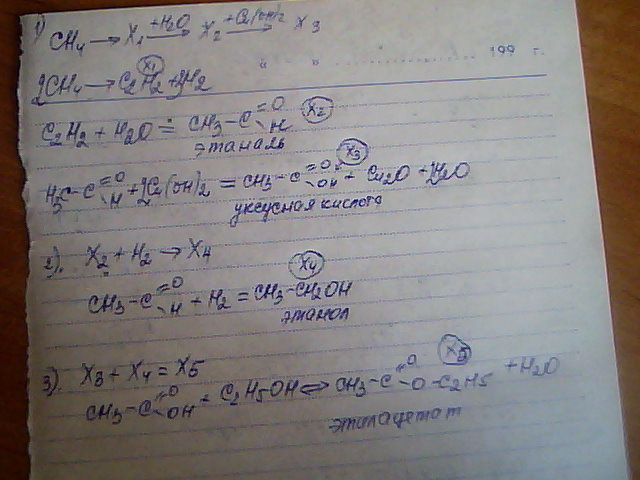 1) CH4 → X1 +H2O → X2 +Cu(OH)2 → X3
" " 199 г.
2CH4 → C2H2 + 3H2 X1
C2H2 + H2O = CH3-C=O H X2
этаналь
H3C-C=O H + 2Cu(OH)2 = CH3-C=O OH + Cu2O + 2H2O X3
уксусная кислота
2). X2 + H2 → X4
CH3-C=O H + H2 = CH3-CH2OH X4
этанол
3). X3 + X4 = X5
CH3-C=O OH + C2H5OH ⇔ CH3-C=O O-C2H5 + H2O X5
этилацетат